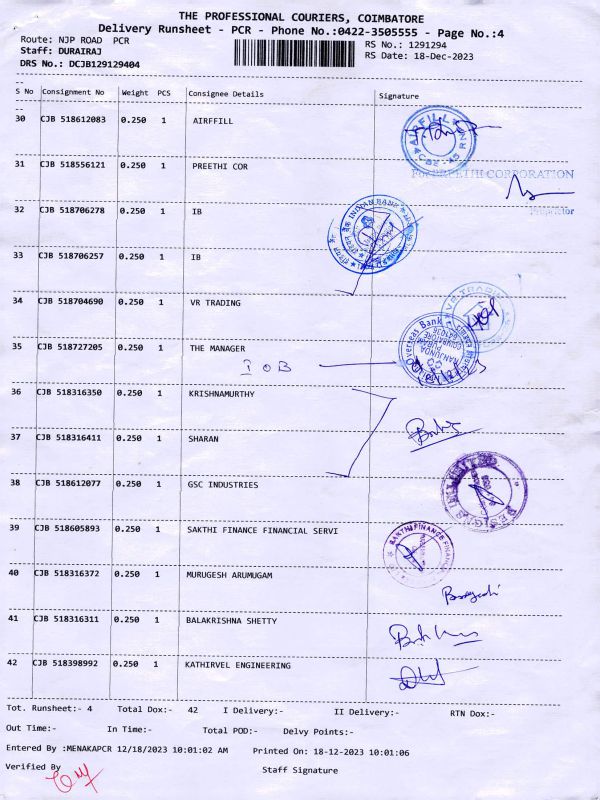 THE PROFESSIONAL COURIERS, COIMBATORE
Delivery Runsheet - PCR - Phone No.:0422-3505555 - Page No.:4
Route: NJP ROAD PCR
RS No.: 1291294
Staff: DURAIRAJ
RS Date: 18-Dec-2023
DRS No.: DCJB129129404
S No Consignment No Weight PCS Consignee Details Signature
30 CJB 518612083 0.250 1 AIRFFILL
AIRFILL
CBE - 45
31 CJB 518556121 0.250 1 PREETHI COR
For PREETHI CORPORATION
Proprietor
32 CJB 518706278 0.250 1 IB
INDIAN BANK
33 CJB 518706257 0.250 1 IB
34 CJB 518704690 0.250 1 VR TRADING
VR TRADING
35 CJB 518727205 0.250 1 THE MANAGER
IOB
Overseas Bank
36 CJB 518316350 0.250 1 KRISHNAMURTHY
37 CJB 518316411 0.250 1 SHARAN
38 CJB 518612077 0.250 1 GSC INDUSTRIES
39 CJB 518605893 0.250 1 SAKTHI FINANCE FINANCIAL SERVI
SAKTHI FINANCE FINANC
40 CJB 518316372 0.250 1 MURUGESH ARUMUGAM
41 CJB 518316311 0.250 1 BALAKRISHNA SHETTY
42 CJB 518398992 0.250 1 KATHIRVEL ENGINEERING
Tot. Runsheet:- 4 Total Dox:- 42 I Delivery:- II Delivery:- RTN Dox:-
Out Time:- In Time:- Total POD:- Delvy Points:-
Entered By :MENAKAPCR 12/18/2023 10:01:02 AM Printed On: 18-12-2023 10:01:06
Verified By Staff Signature